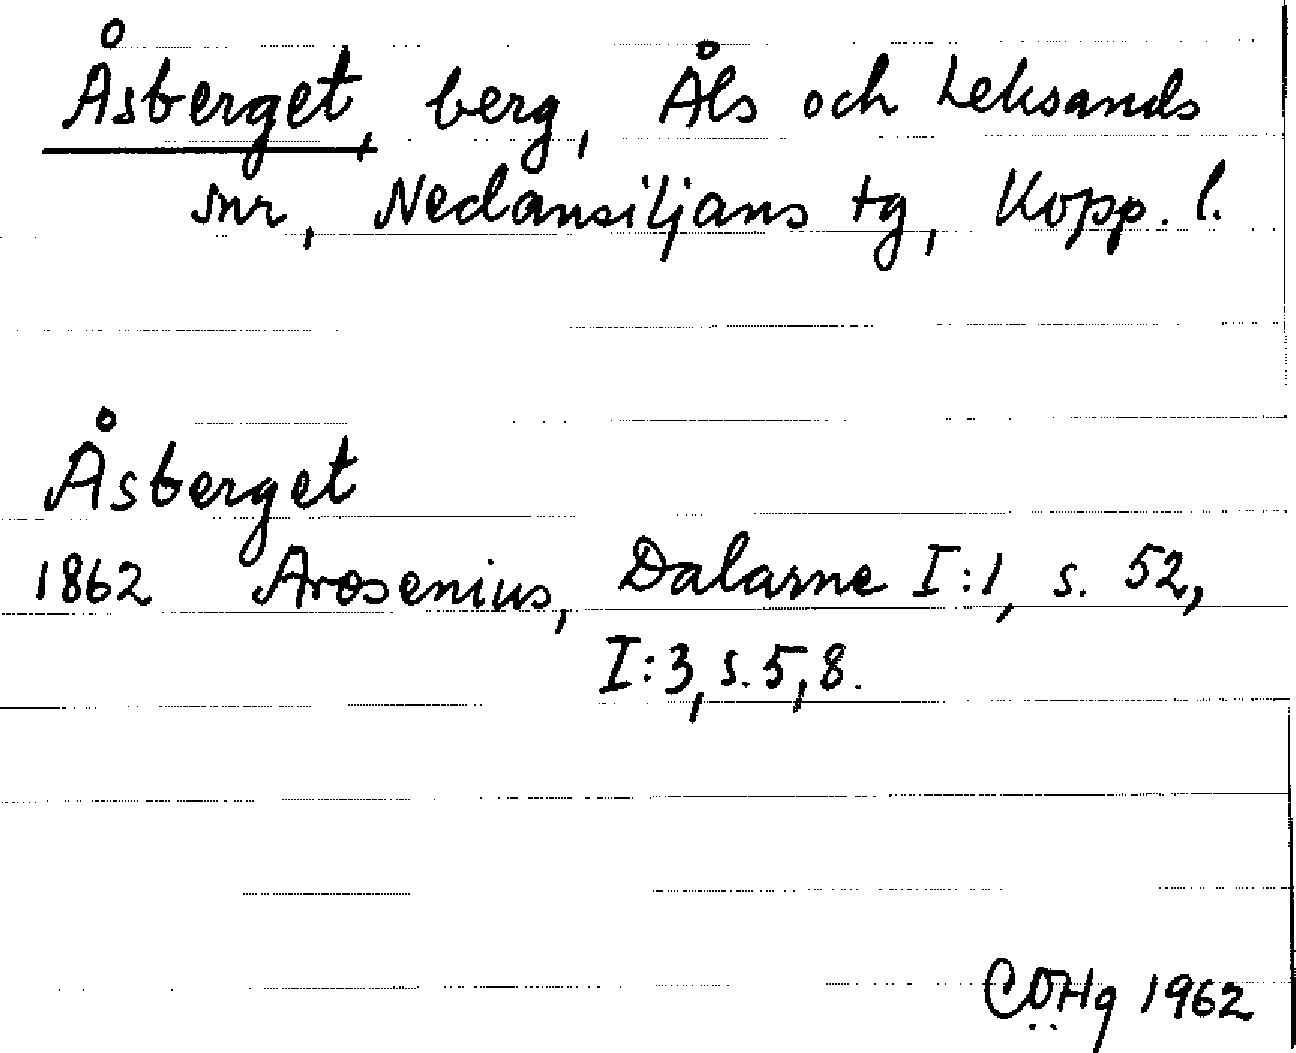 Åsberget, berg, Åls och Leksands
snr, Nedansiljans tg, Kopp. l.
Åsberget
1862 Arosenius, Dalarne I:1, s. 52,
I:3, s. 5, 8.
1962